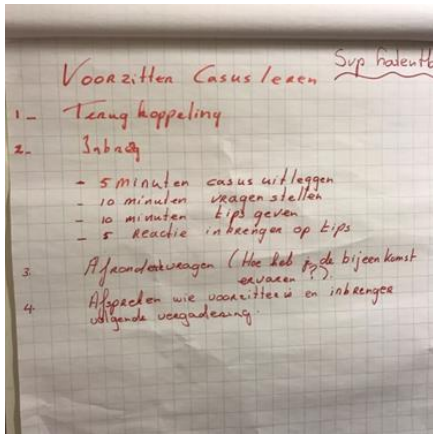 Svp
Voorzitten Casus leren
1- Terugkoppeling
2- Inbreng
- 5 minuten casus uitleggen
- 10 minuten vragen stellen
- 10 minuten tips geven
- 5 Reactie inbrenger op tips
3. Afronden vragen (Hoe heb je de bijeenkomst
ervaren?).
4. Afspreken wie voorzitter is en inbrenger
volgende vergadering.